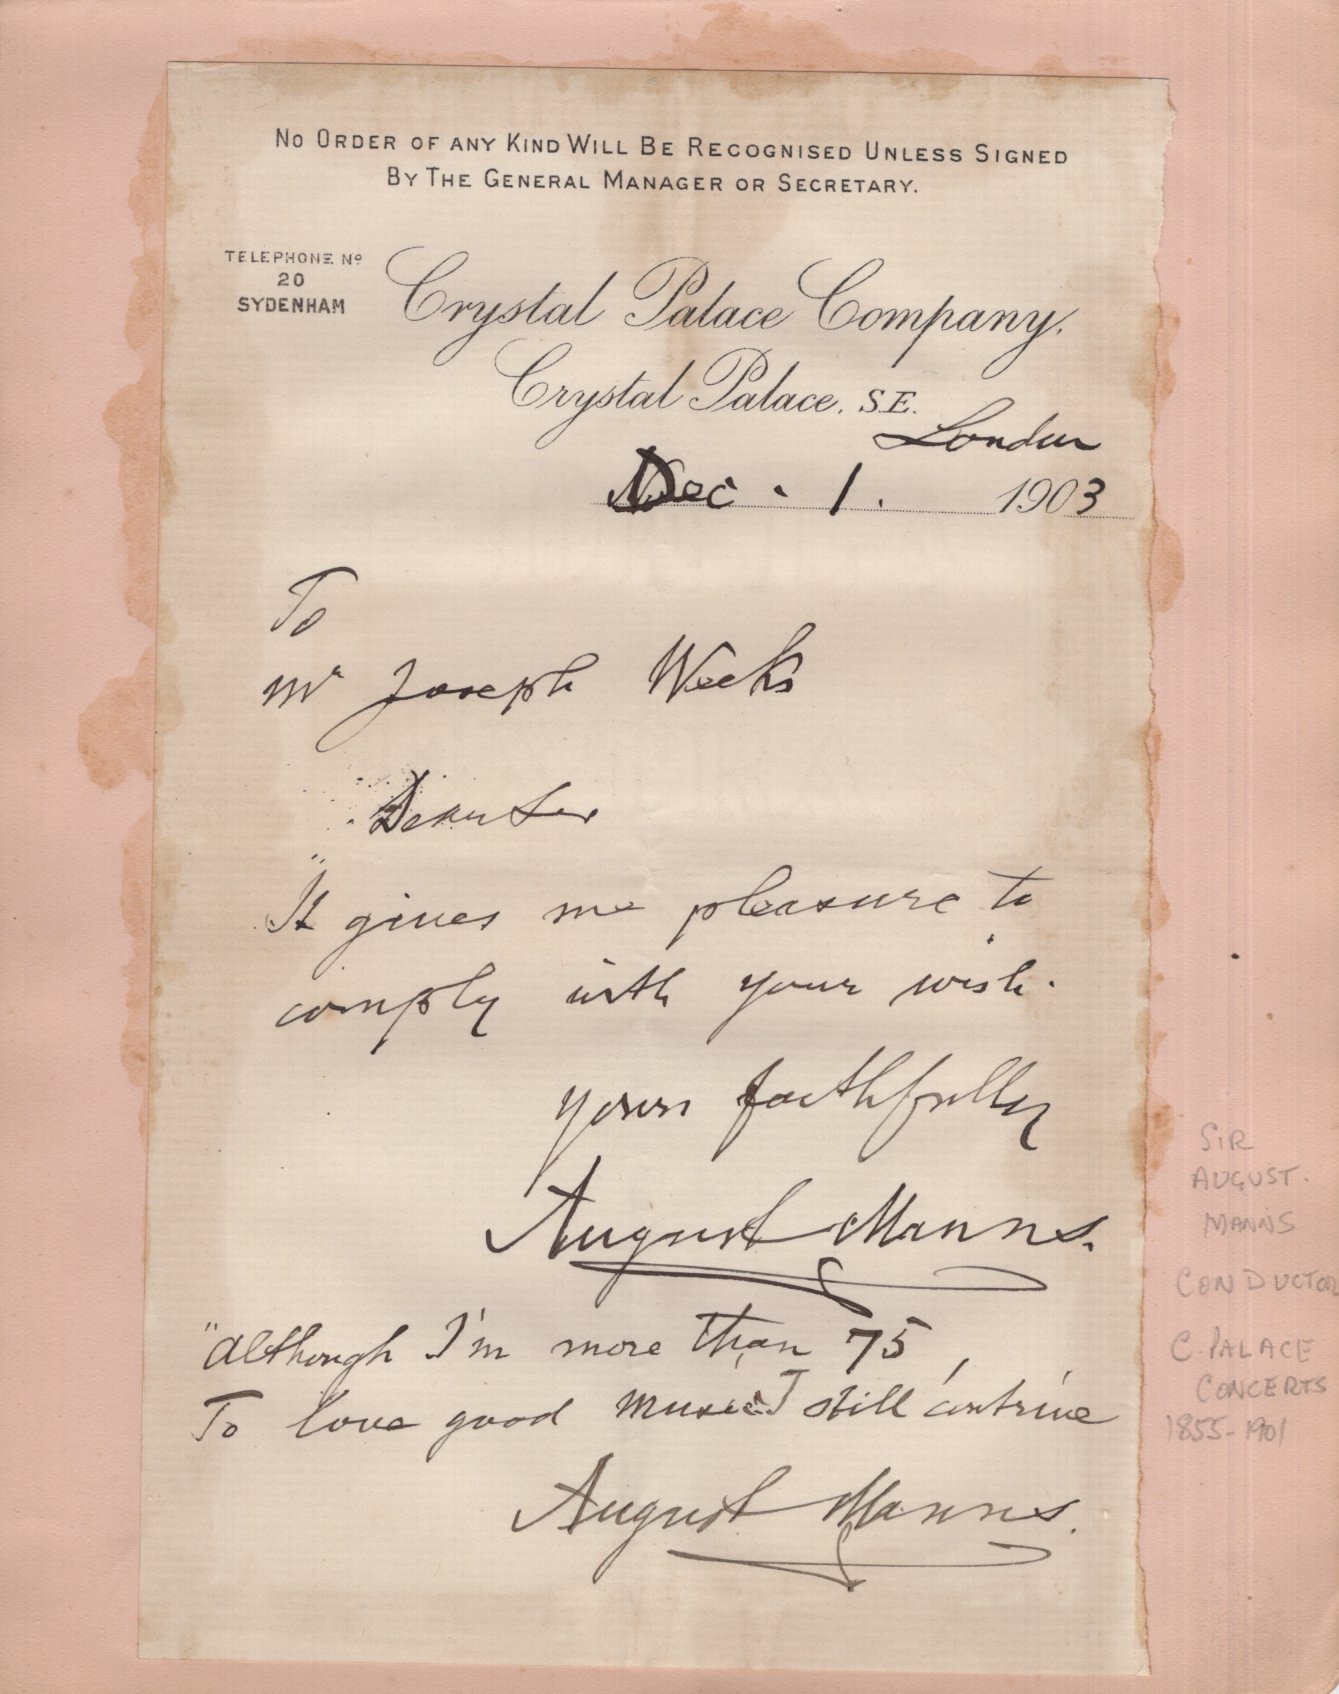 No Order of any Kind Will Be Recognised Unless Signed
By The General Manager or Secretary.
TELEPHONE No
20
SYDENHAM
Crystal Palace Company.
Crystal Palace, S.E.
London
Dec. 1. 1903
To
Mr Joseph Weeks
Dear Sir
"It gives me pleasure to
comply with your wish.
yours faithfully
August Manns.
"although I'm more than 75,
To love good music I still contrive
August Manns.
SIR
AUGUST.
MANNS
CONDUCTOR
C. PALACE
CONCERTS
1855-1901